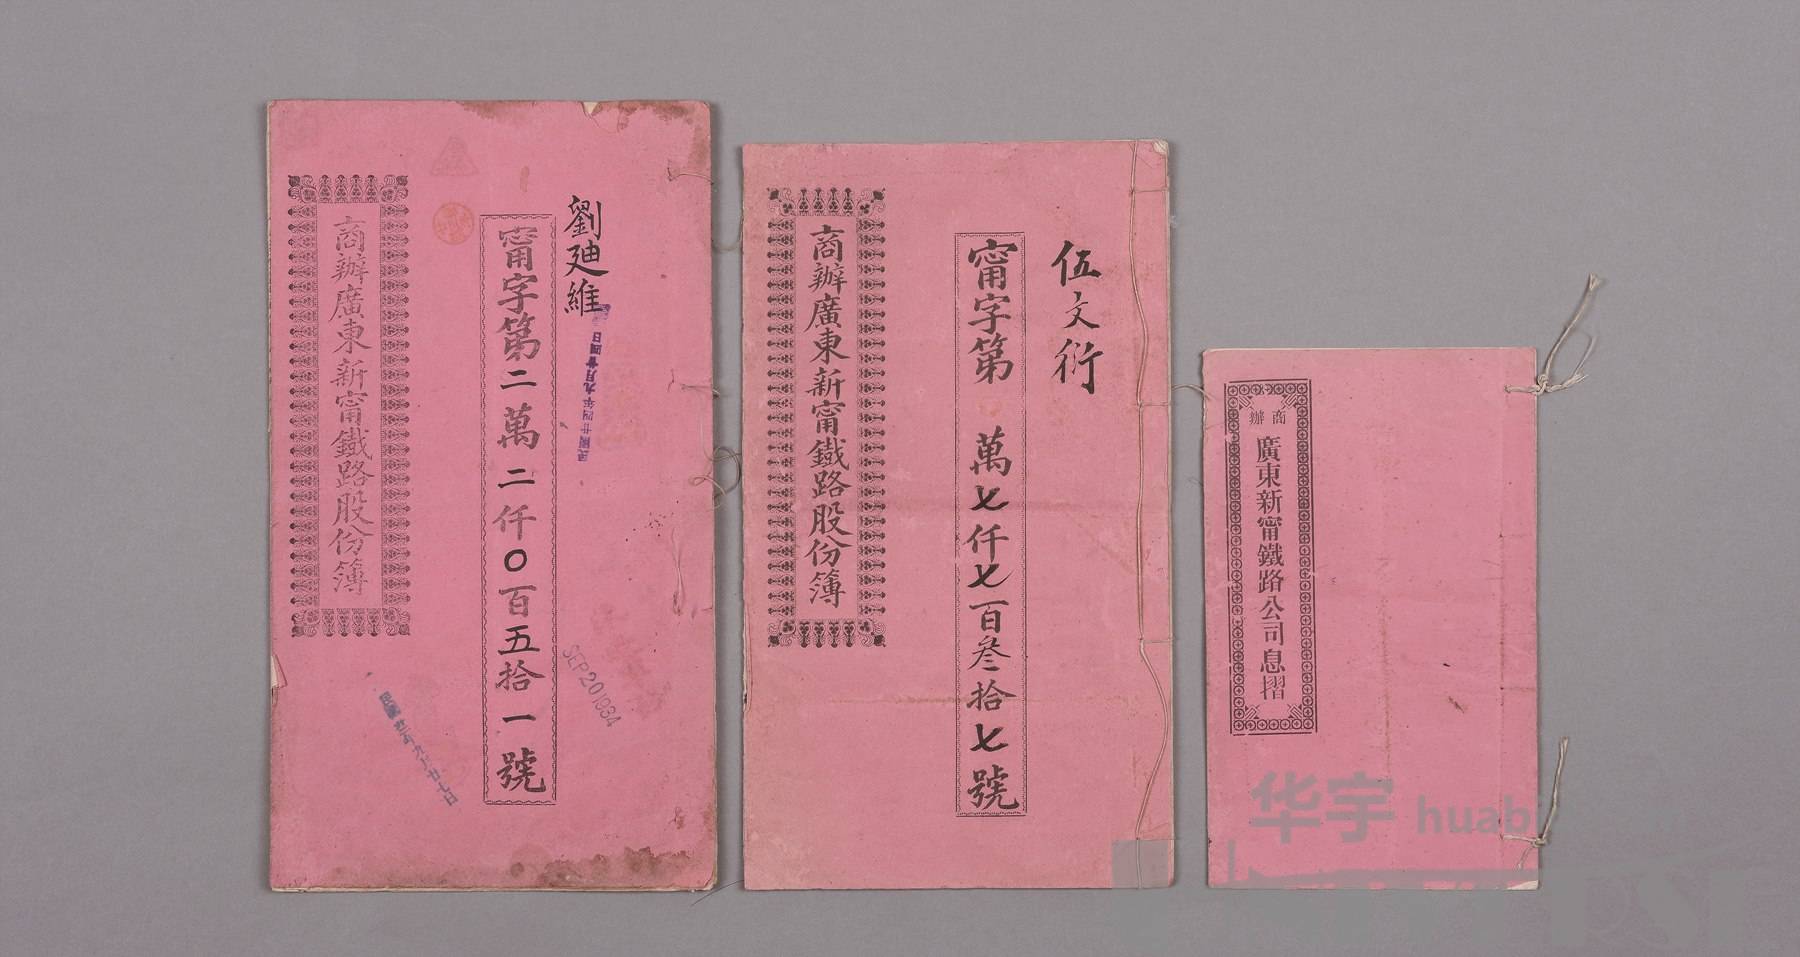 劉廸維
甯字第二萬二仟〇百五拾一號
商辦廣東新甯鐵路股份簿
民國廿四年九月廿四日
SEP 20 1934
伍文衍
甯字第 萬七仟七百叁拾七號
商辦廣東新甯鐵路股份簿
商辦
廣東新甯鐵路公司息摺
华宇 huabi